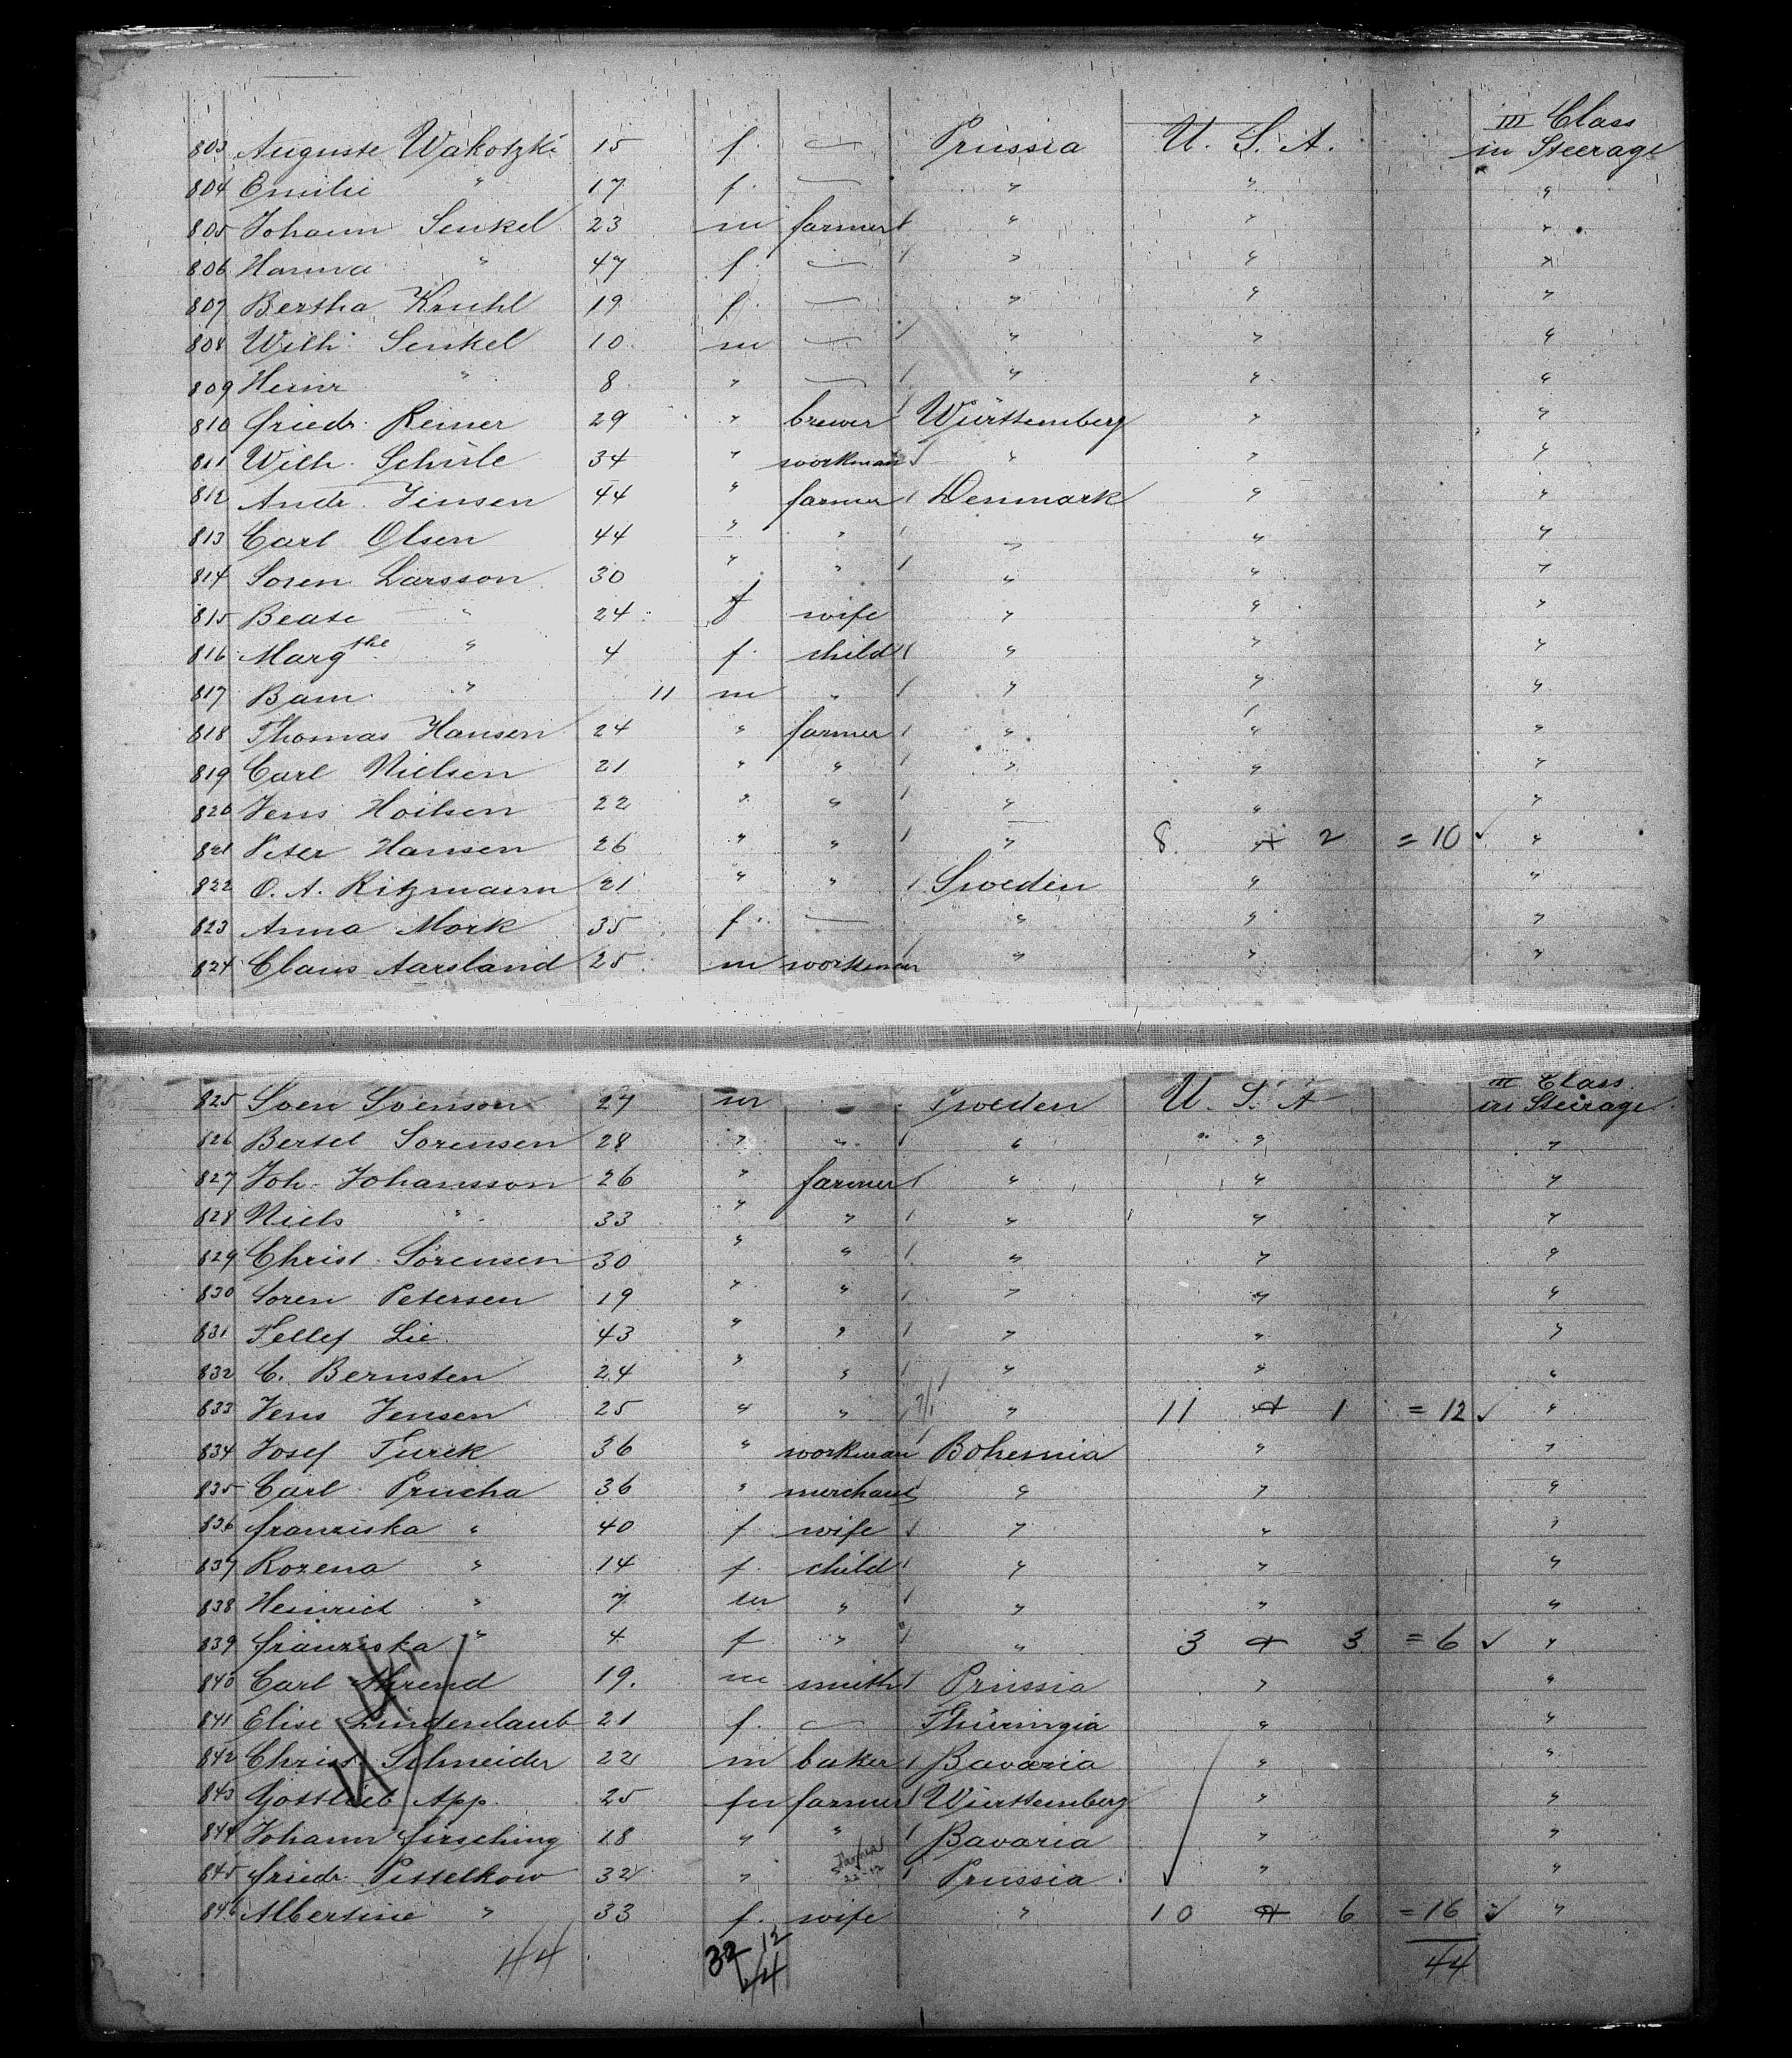 III Class
803 Auguste Wakotzki 15 f. — Prussia U. S. A. in Steerage
804 Emilie " 17 f. — " " "
805 Johann Senkel 23 m farmer " " "
806 Hanna " 47 f. — " " "
807 Bertha Kruhl 19 f. — " " "
808 Wilh. Senkel 10 m — " " "
809 Heinr " 8 " — " " "
810 Friedr. Reiner 29 " brewer Württemberg " "
811 Wilh. Schüle 34 " workman " " "
812 Andr. Jensen 44 " farmer Denmark " "
813 Carl Olsen 44 " " " " "
814 Soren Larsson 30 " " " " "
815 Beate " 24 f wife " " "
816 Margthe " 4 f. child " " "
817 Bam " 11 m " " " "
818 Thomas Hansen 24 " farmer " " "
819 Carl Nielsen 21 " " " " "
820 Jens Hoilsen 22 " " " " "
821 Peter Hansen 26 " " " 8 + 2 = 10 ✓ "
822 O. A. Ritzmann 21 " " Sweden " "
823 Anna Mork 35 f. — " " "
824 Claus Aarsland 25 m workman " " "
III Class
825 Sven Svenson 27 m " Sweden U. S. A in Steerage
826 Bertel Sorensen 28 " " " " "
827 Joh. Johansson 26 " farmer " " "
828 Niels " 33 " " " " "
829 Christ. Sörensen 30 " " " " "
830 Soren Petersen 19 " " " " "
831 Tellef Lie 43 " " " " "
832 C. Bernsten 24 " " " " "
833 Jens Jensen 25 " " " 11 + 1 = 12 ✓ "
834 Josef Turek 36 " workman Bohemia " "
835 Carl Prucha 36 " merchant " " "
836 Franziska " 40 f wife " " "
837 Rozena " 14 f. child " " "
838 Heinrich " 7 m " " " "
839 Franziska " 4 f " " 3 + 3 = 6 ✓ "
840 Carl Ahrend 19. m smith Prussia " "
841 Elise Lindenlaub 21 f. — Thüringia " "
842 Christ. Schneider 22 m baker Bavaria " "
843 Gottlieb App. 25 m farmer Württemberg " "
844 Johann Hirsching 18 " " Bavaria " "
845 Friedr. Pettelkow 32 " " Prussia " "
846 Albertine " 33 f. wife " 10 + 6 = 16 ✓ "
44 32 12 44 44